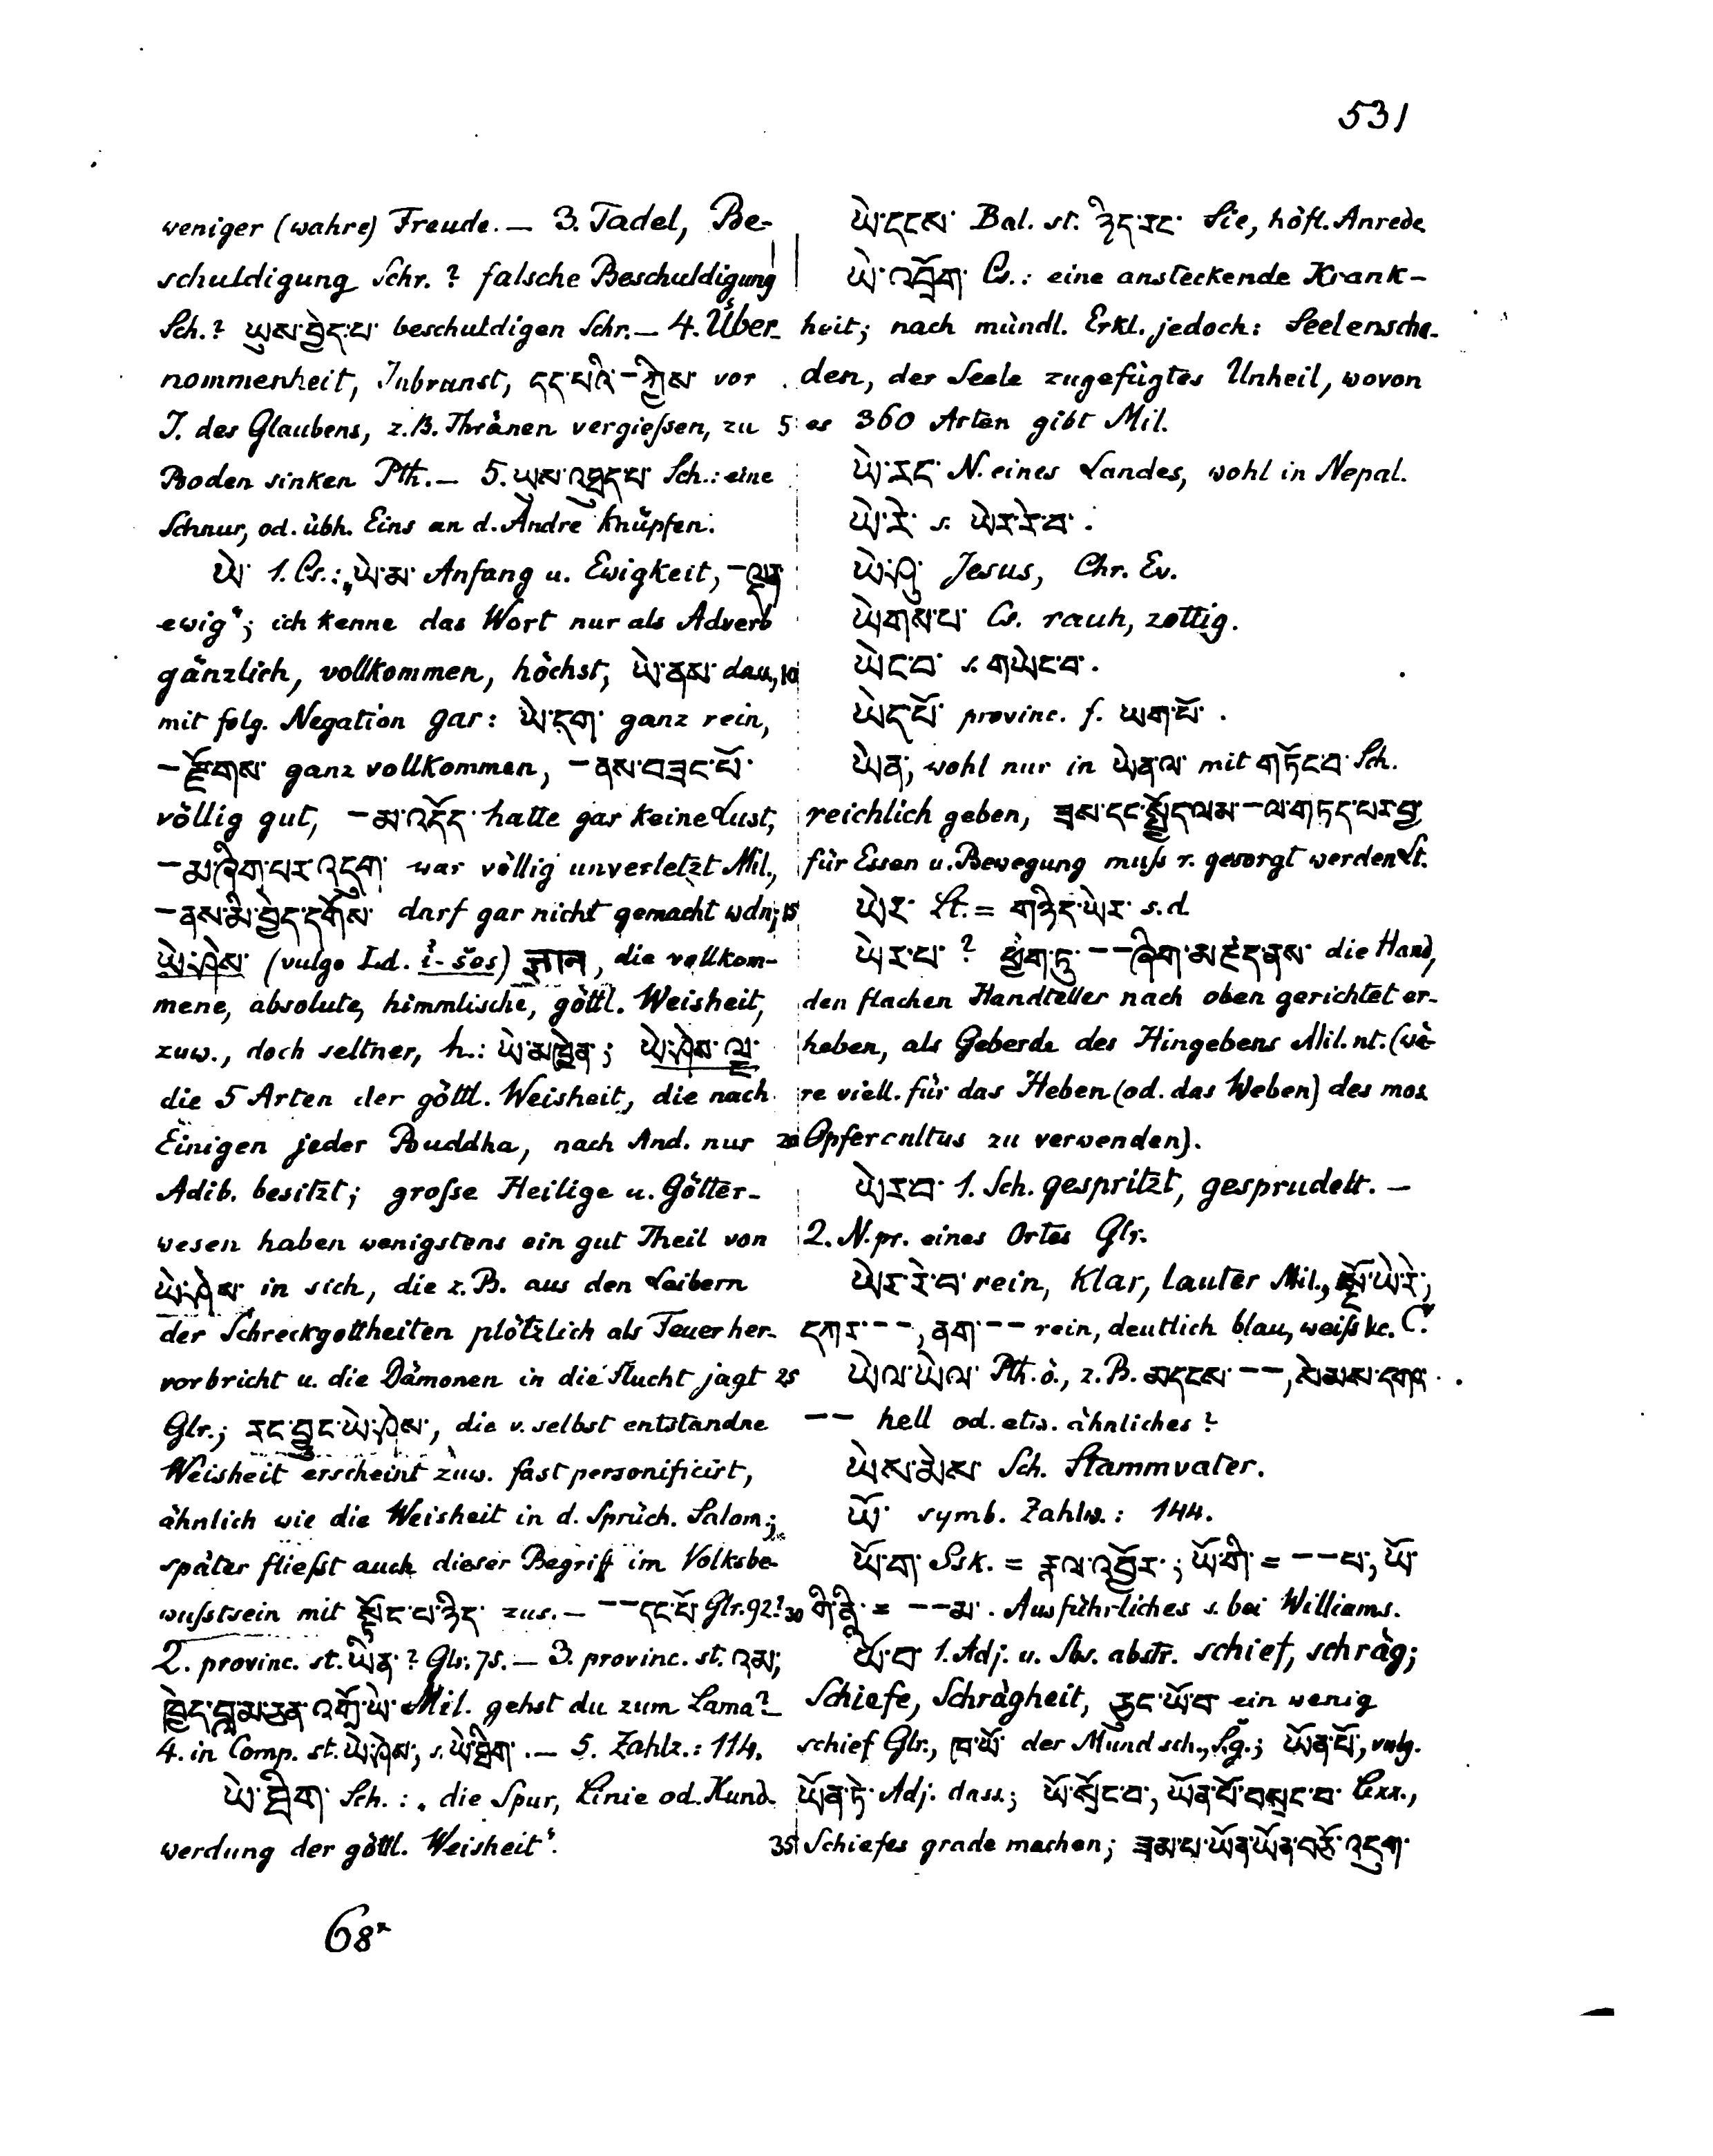 531
weniger (wahre) Freude. — 3. Tadel, Be-
schuldigung Schr.? falsche Beschuldigung
Sch.? ཡུས་བྱེད་པ་ beschuldigen Schr. — 4. Über-
nommenheit, Inbrunst, དད་པའི་ – ཀྱིས་ vor
I. des Glaubens, z.B. Thränen vergießen, zu 5
Boden sinken Pth. — 5. ཡུས་འཐུད་པ་ Sch.: eine
Schnur, od. übh. Eins an d. Andre knüpfen.
ཡེ་ 1. Cs.: „ཡེ་མ་ Anfang u. Ewigkeit, – ལྡན་
ewig“; ich kenne das Wort nur als Adverb
gänzlich, vollkommen, höchst, ཡེ་ནས་ dass, 10
mit folg. Negation gar: ཡེ་དག་ ganz rein,
– རྫོགས་ ganz vollkommen, – ནས་བཟང་པོ་
völlig gut, – མ་འདོད་ hatte gar keine Lust,
– མ་ཞིག་པར་འདུག་ war völlig unverletzt Mil.,
– ནས་མི་བྱེད་དགོས་ darf gar nicht gemacht wdn; 15
ཡེ་ཤེས་ (vulgo Ld. i-šes) ज्ञान, die vollkom-
mene, absolute, himmlische, göttl. Weisheit,
zuw., doch seltner, h.: ཡེ་མཁྱེན་; ཡེ་ཤེས་ལྔ་
die 5 Arten der göttl. Weisheit, die nach
Einigen jeder Buddha, nach And. nur 20
Adib. besitzt; große Heilige u. Götter-
wesen haben wenigstens ein gut Theil von
ཡེ་ཤེས་ in sich, die z.B. aus den Leibern
der Schreckgottheiten plötzlich als Feuer her-
vorbricht u. die Dämonen in die Flucht jagt 25
Glr.; རང་བྱུང་ཡེ་ཤེས་, die v. selbst entstandne
Weisheit erscheint zuw. fast personificirt,
ähnlich wie die Weisheit in d. Sprüch. Salom.;
später fließt auch dieser Begriff im Volksbe-
wußtsein mit སྟོང་པ་ཉིད་ zus. — – – དང་པོ་ Glr. 92? 30
2. provinc. st. ཡིན་? Glr. 75. — 3. provinc. st. འམ་;
ཁྱེད་བླ་མ་ཅན་འགྲོ་ཡེ་ Mil. gehst du zum Lama? —
4. in Comp. st. ཡེ་ཤེས་, s. ཡེ་ཐིག་. — 5. Zahlz.: 114.
ཡེ་ཐིག་ Sch.: „die Spur, Linie od. Kund-
werdung der göttl. Weisheit“. 35
ཡེ་དངས་ Bal. st. ཉིད་རང་ Sie, höfl. Anrede
ཡེ་འབྲོག་ Cs.: eine ansteckende Krank-
heit; nach mündl. Erkl. jedoch: Seelenscha-
den, der Seele zugefügtes Unheil, wovon
es 360 Arten gibt Mil.
ཡེ་རང་ N. eines Landes, wohl in Nepal.
ཡེ་རེ་ s. ཡེར་རེ་བ་.
ཡེ་ཤུ་ Jesus, Chr. Ev.
ཡེགས་པ་ Cs. rauh, zottig.
ཡེང་བ་ s. གཡེང་བ་.
ཡེད་པོ་ provinc. f. ཡག་པོ་.
ཡེན་, wohl nur in ཡེན་ལ་ mit གཏོང་བ་ Sch.
reichlich geben, ཟས་དང་སྤྱོད་ལམ་ – ལ་གཏད་པར་བྱ་
für Essen u. Bewegung muß r. gesorgt werden Lt.
ཡེར་ Lt. = གཉིད་ཡེར་ s.d.
ཡེར་པ་ ? ཕྱག་ཏུ་ – – ཞིག་མཛད་ནས་ die Hand,
den flachen Handteller nach oben gerichtet er-
heben, als Geberde des Hingebens Mil. nt. (wä-
re viell. für das Heben (od. das Weben) des mos.
Opfercultus zu verwenden).
ཡེར་བ་ 1. Sch. gespritzt, gesprudelt. —
2. N. pr. eines Ortes Glr.
ཡེར་རེ་བ་ rein, klar, lauter Mil., སྔོ་ཡེ་རེ་,
དཀར་ – –, ནག་ – – rein, deutlich blau, weiß &c. C.
ཡེལ་ཡེལ་ Pth. ö., z.B. མདངས་ – –, སེམས་དགའ་
– – hell od. etw. ähnliches?
ཡེས་མེས་ Sch. Stammvater.
ཡོ་ symb. Zahlw.: 144.
ཡོ་ག་ Ssk. = རྣལ་འབྱོར་; ཡོ་གི་ = – – པ་, ཡོ་
གི་ནི་ = – – མ་. Ausführliches s. bei Williams.
ཡོ་བ་ 1. Adj. u. Sbs. abstr. schief, schräg;
Schiefe, Schrägheit, ཅུང་ཡོ་བ་ ein wenig
schief Glr., ཁ་ཡོ་ der Mund sch., S.g.; ཡོན་པོ་, vulg.
ཡོན་ཏེ་ Adj. dass.; ཡོ་སྲོང་བ་, ཡོན་པོ་བསྲང་བ་ Lexx.,
Schiefes grade machen; ཟམ་པ་ཡོན་ཡོན་བཅོ་འདུག་
68*